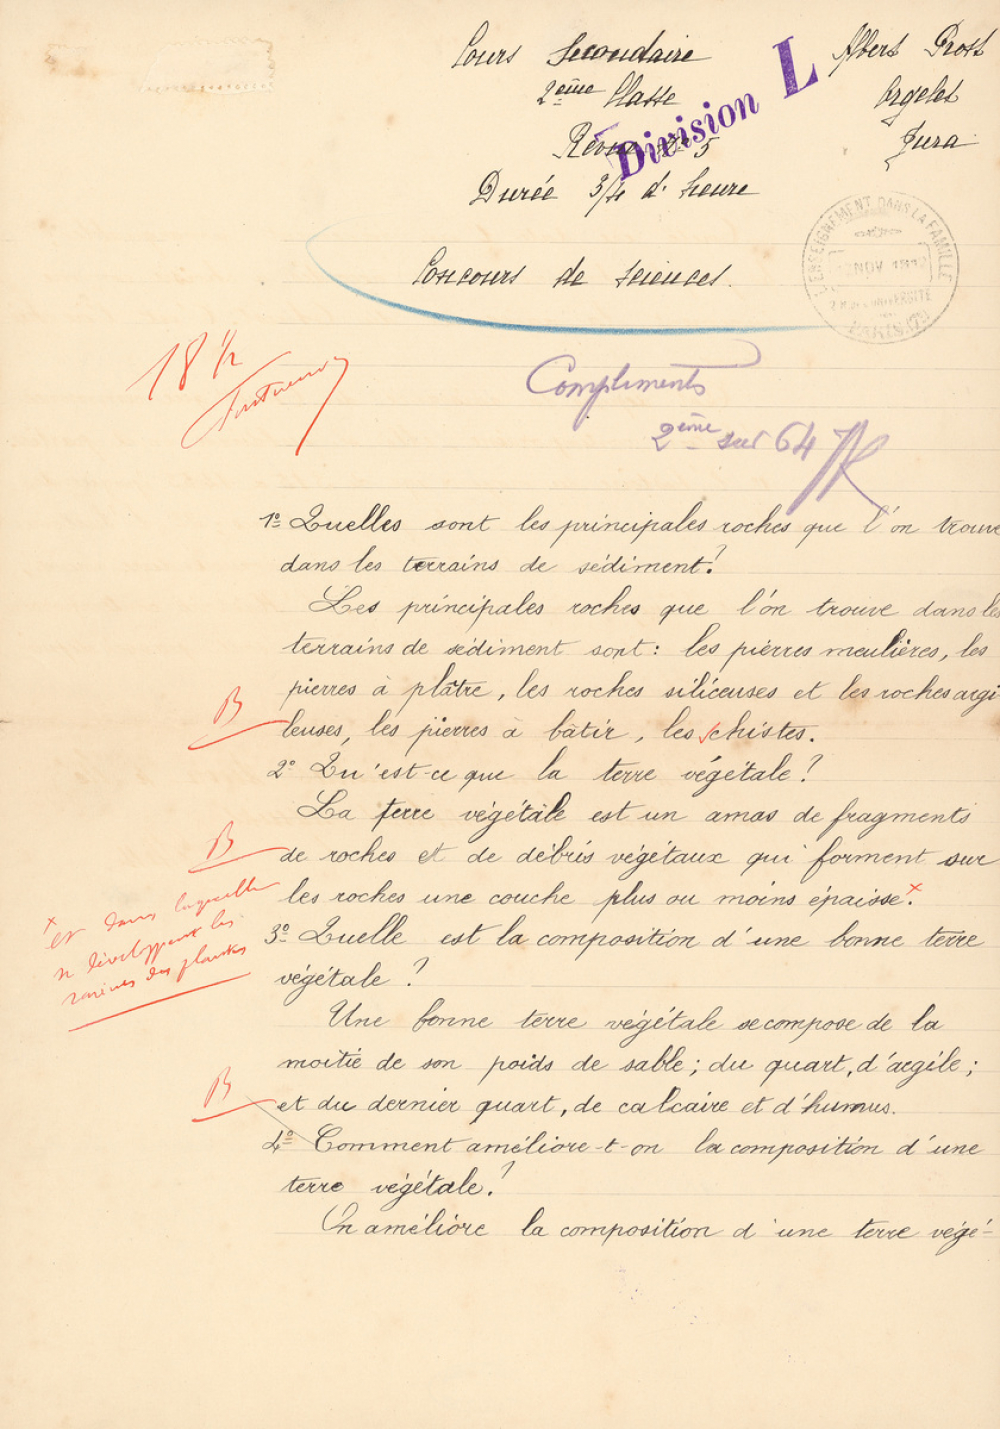 Cours Secondaire
Albert Prost
2ème Classe
Orgelet
Division L
Jura
Durée 3/4 d'heure
L'ENSEIGNEMENT DANS LA FAMILLE
NOV 1912
Concours de Sciences.
18 1/2
Compliments
2ème sur 64
1º Quelles sont les principales roches que l'on trouve
dans les terrains de sédiment?
Les principales roches que l'on trouve dans les
terrains de sédiment sont: les pierres meulières, les
pierres à plâtre, les roches siliceuses et les roches argi-
B
leuses, les pierres à bâtir, les schistes.
2º Qu'est-ce que la terre végétale?
La terre végétale est un amas de fragments
B
de roches et de débris végétaux qui forment sur
les roches une couche plus ou moins épaisse. x
x et dans laquelle
se développent les
racines des plantes
3º Quelle est la composition d'une bonne terre
végétale?
Une bonne terre végétale se compose de la
moitié de son poids de sable; du quart, d'argile;
B
et du dernier quart, de calcaire et d'humus.
4º Comment améliore-t-on la composition d'une
terre végétale?
On améliore la composition d'une terre végé-